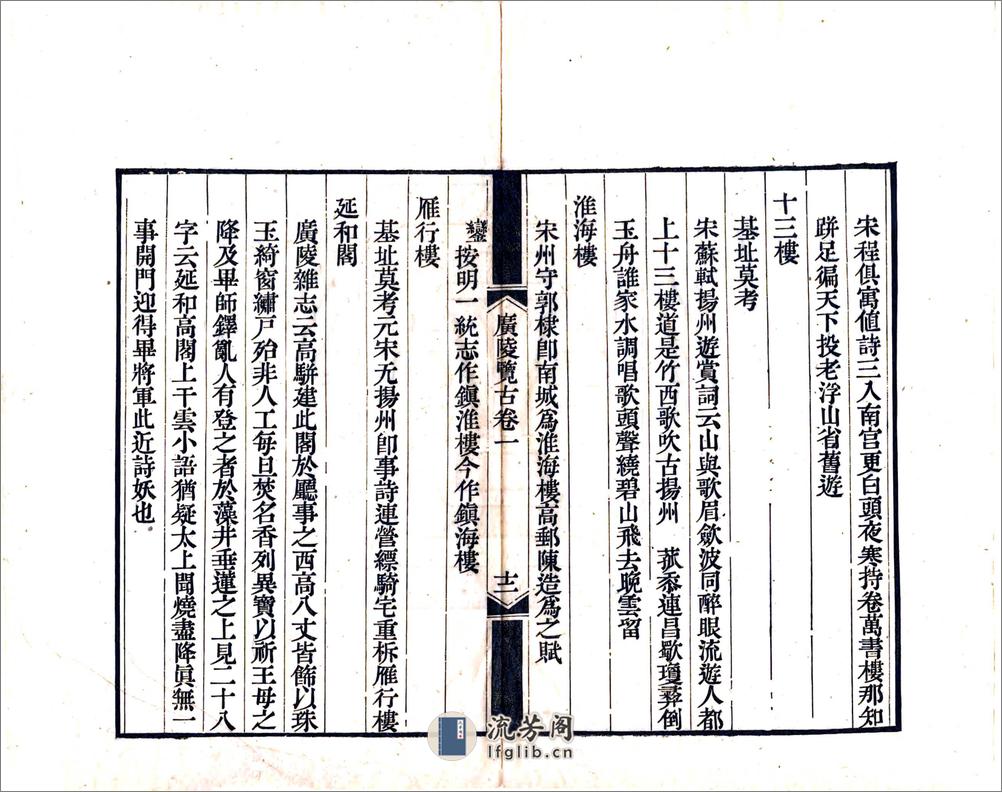 宋程俱寓値詩三入南宫更白頭夜寒持卷萬書樓那知
跰足徧天下投老浮山省舊遊
十三樓
基址莫考
宋蘇軾揚州遊賞詞云山與歌眉歛波同醉眼流遊人都
上十三樓道是竹西歌吹古揚州　菰黍連昌歜瓊彛倒
玉舟誰家水調唱歌頭聲繞碧山飛去晩雲畱
淮海樓
宋州守郭棣卽南城爲淮海樓高郵陳造爲之賦
廣陵覽古卷一
十二
鑾按明一統志作鎭淮樓今作鎭海樓
雁行樓
基址莫考元宋无揚州卽事詩連營縹騎宅重柝雁行樓
延和閣
廣陵雜志云高駢建此閣於廳事之西高八丈皆飾以珠
玉綺窗繡戸殆非人工每旦焚名香列異寶以祈王母之
降及畢師鐸亂人有登之者於藻井垂蓮之上見二十八
字云延和高閣上干雲小語猶疑太上聞燒盡降眞無一
事開門迎得畢將軍此近詩妖也
流芳阁
lfglib.cn